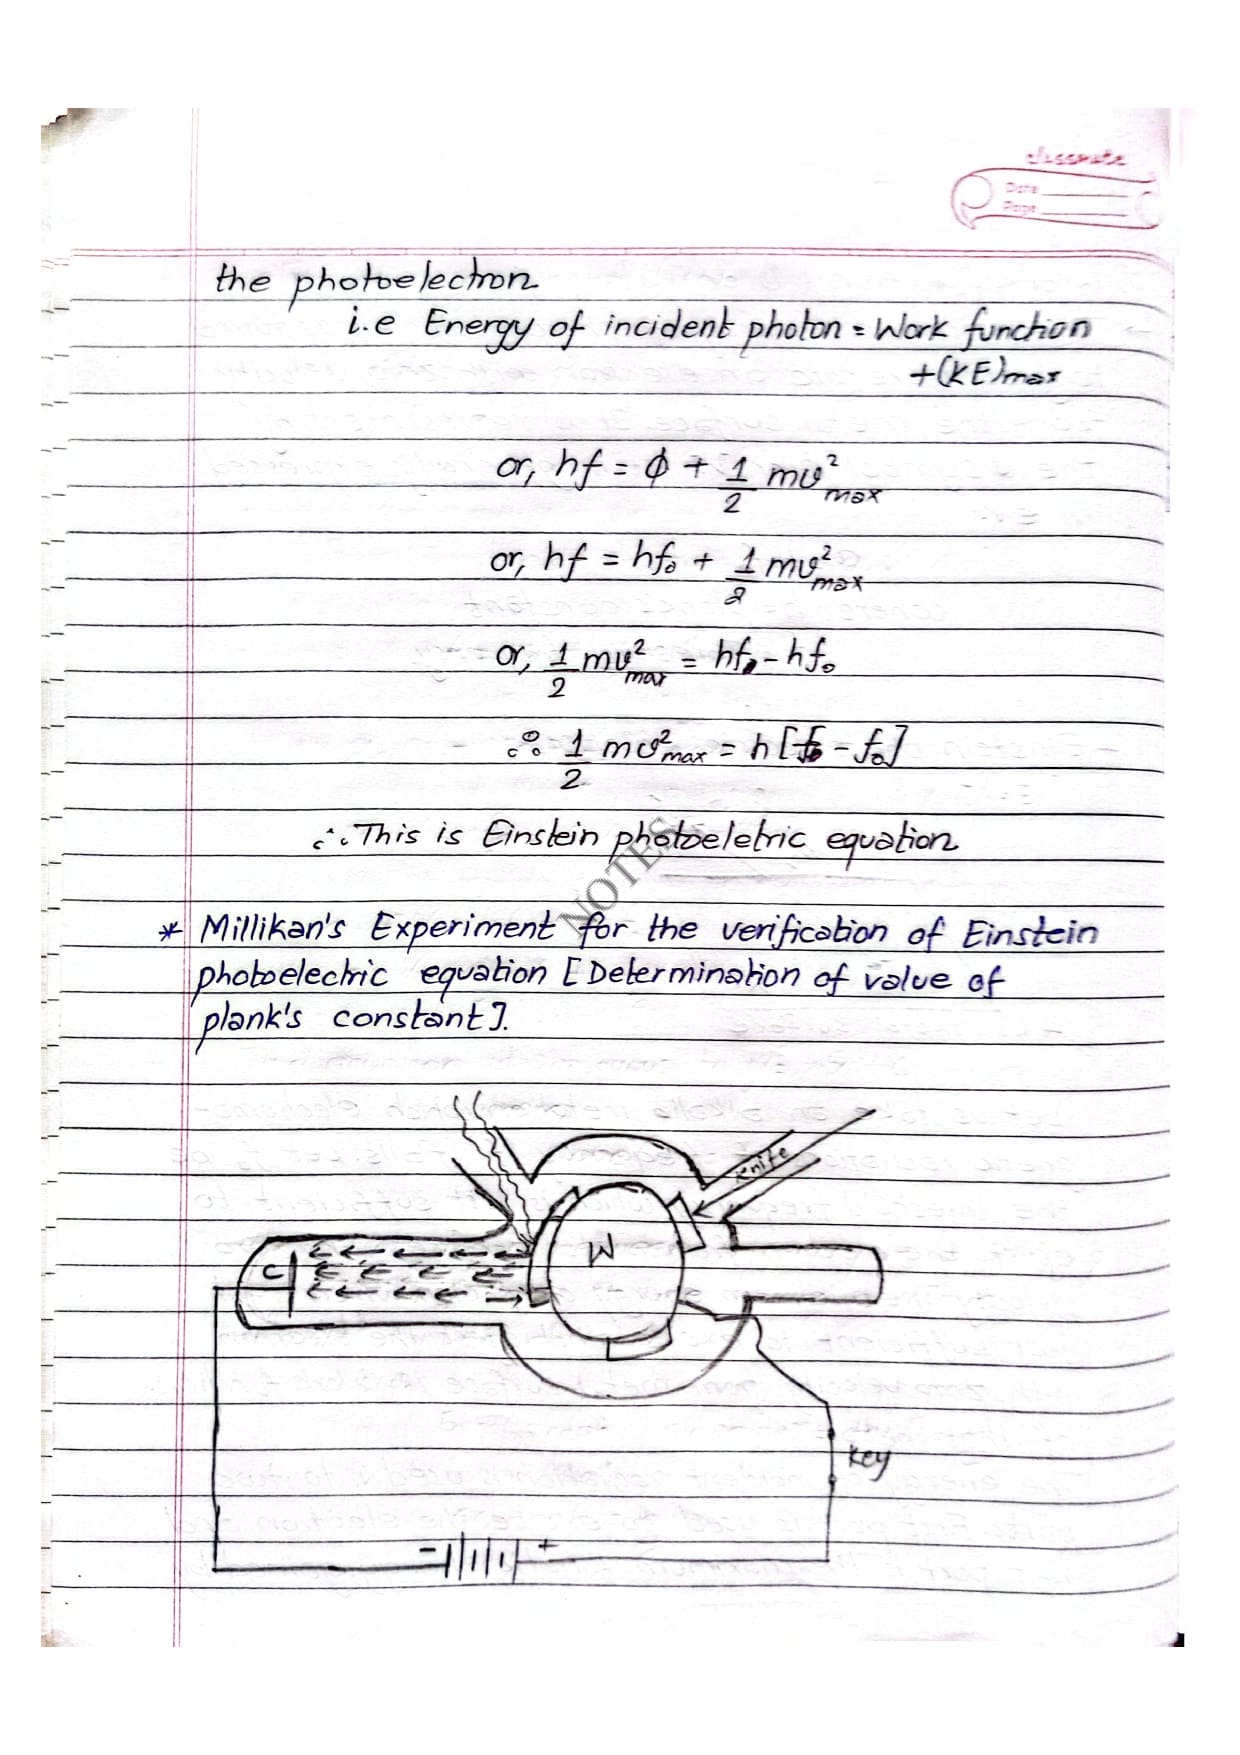 classmate
Date
Page
the photoelectron
i.e Energy of incident photon = Work function
+(KE)max
or, hf = ϕ + 1/2 mv²max
or, hf = hf₀ + 1/2 mv²max
or, 1/2 mv²max = hf - hf₀
∴ 1/2 mv²max = h[f - f₀]
∴ This is Einstein photoeletric equation
NOTES
* Millikan's Experiment for the verification of Einstein
photoelectric equation [Determination of value of
plank's constant].
knife
W
C
key
- +